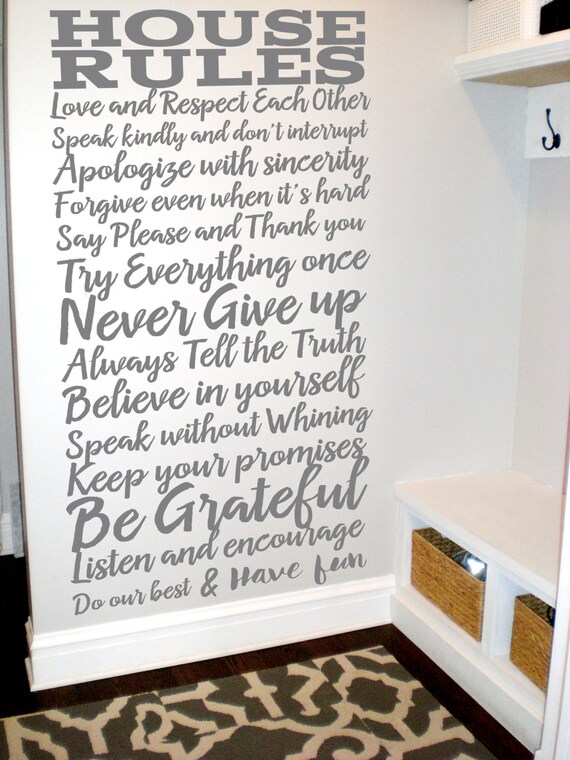 HOUSE
RULES
Love and Respect Each Other
Speak kindly and don't interrupt
Apologize with sincerity
Forgive even when it's hard
Say Please and Thank you
Try Everything once
Never Give up
Always Tell the Truth
Believe in yourself
Speak without Whining
Keep your promises
Be Grateful
Listen and encourage
Do our best & Have fun